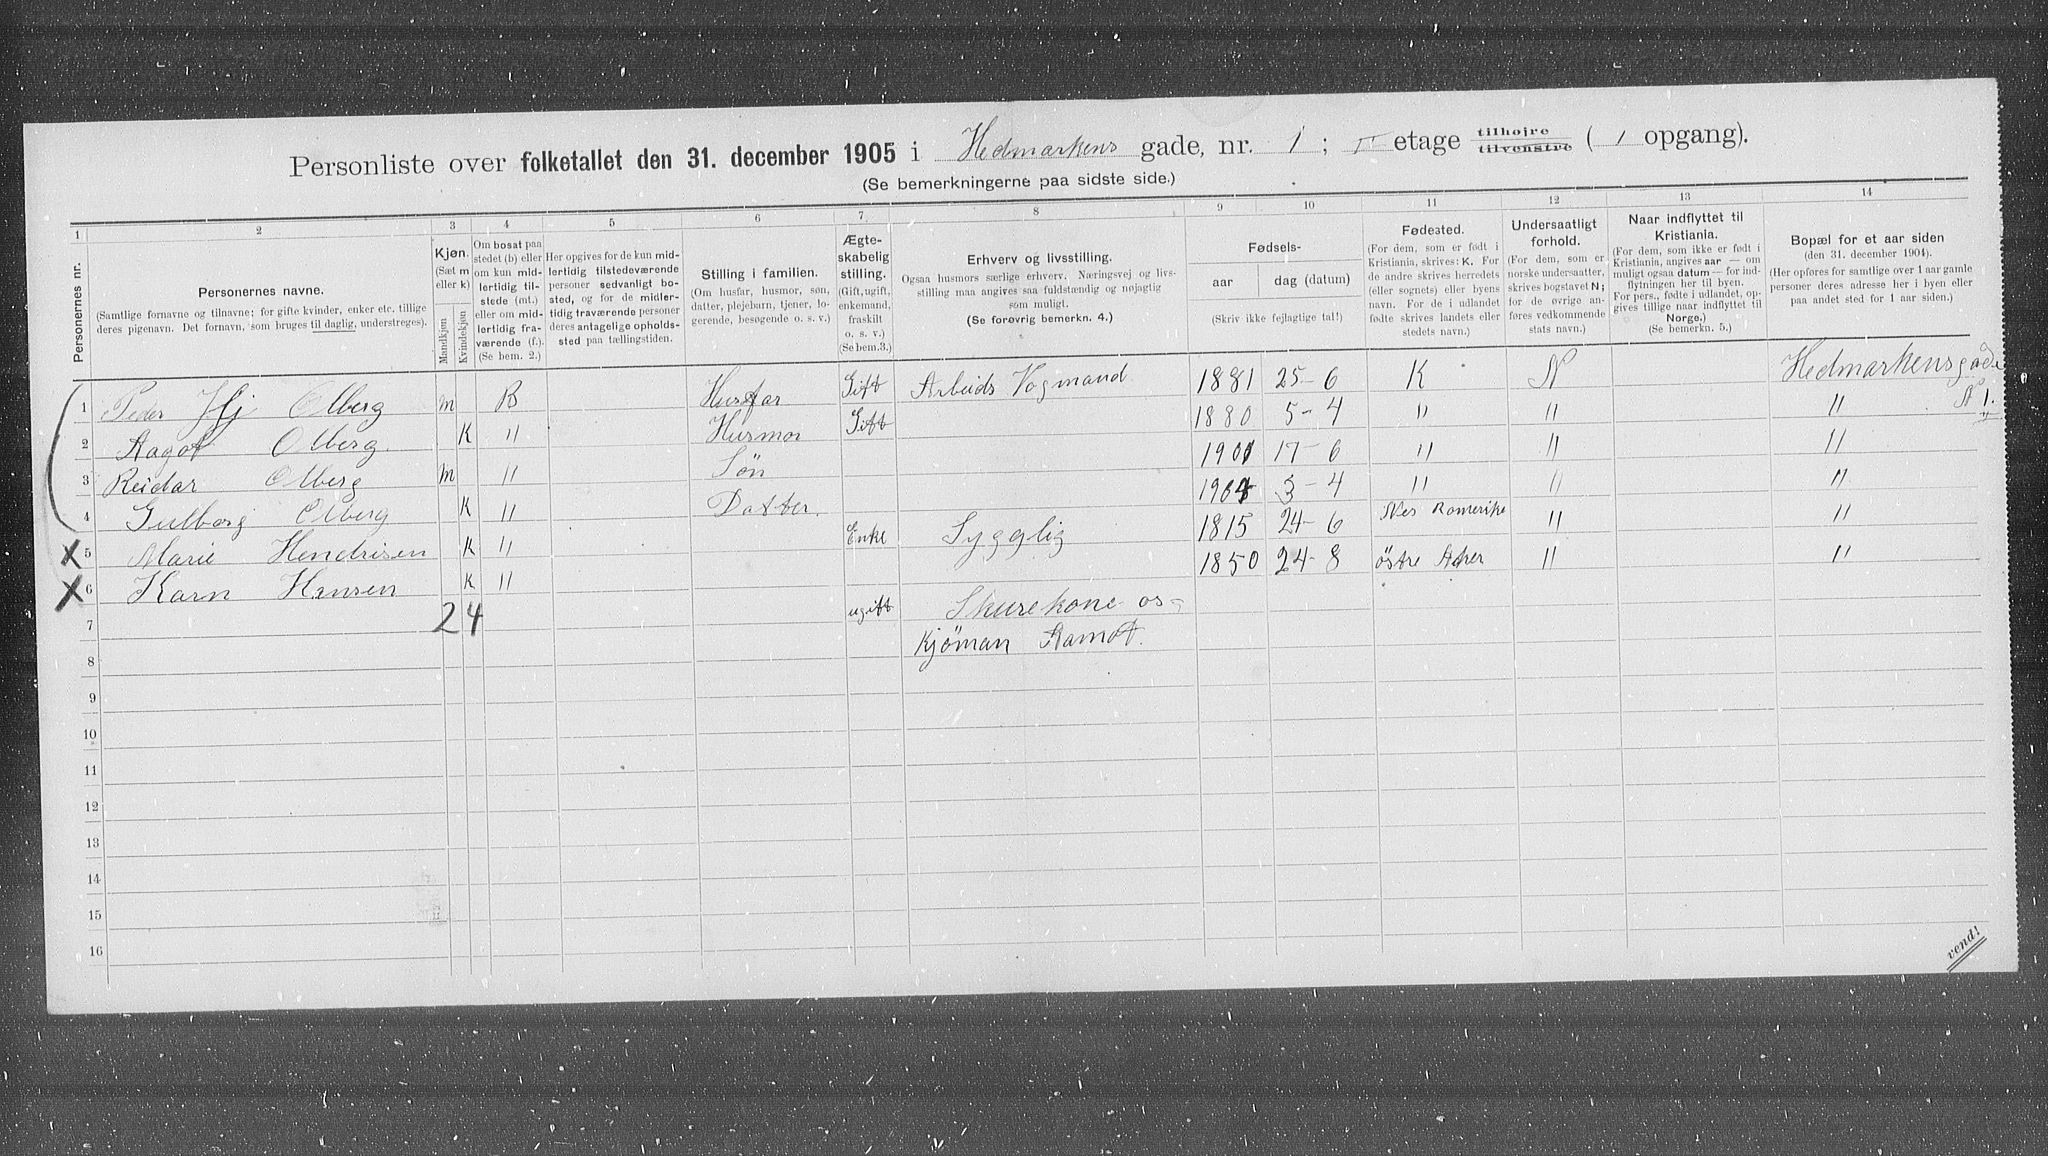 Personliste over folketallet den 31. december 1905 i Hedmarkens gade, nr. 1; II etage tilhøjre tilvenstre ( 1 opgang).
(Se bemerkningerne paa sidste side.)
1 2 3 4 5 6 7 8 9 10 11 12 13 14
Personernes nr.
Personernes navne.
(Samtlige fornavne og tilnavne; for gifte kvinder, enker etc. tillige deres pigenavn. Det fornavn, som bruges til daglig, understreges).
Kjøn.
(Sæt m eller k)
Mandkjøn
Kvindekjøn
Om bosat paa stedet (b) eller om kun midlertidig tilstede (mt.) eller om midlertidig fraværende (f.). (Se bem. 2.)
Her opgives for de kun midlertidig tilstedeværende personer sedvanligt bosted, og for de midlertidig fraværende personer deres antagelige opholdssted paa tællingstiden.
Stilling i familien.
(Om husfar, husmor, søn, datter, plejebarn, tjener, logerende, besøgende o. s. v.)
Ægteskabelig stilling.
(Gift, ugift, enkemand, fraskilt o. s. v.)
(Se bem. 3.)
Erhverv og livsstilling.
Ogsaa husmors særlige erhverv. Næringsvej og livsstilling maa angives saa fuldstændig og nøjagtig som muligt.
(Se forøvrig bemerkn. 4.)
Fødsels-
aar
dag (datum)
(Skriv ikke fejlagtige tal!)
Fødested.
(For dem, som er født i Kristiania, skrives: K. For de andre skrives herredets (eller sognets) eller byens navn. For de i udlandet fødte skrives landets eller stedets navn.)
Undersaatligt forhold.
(For dem, som er norske undersaatter, skrives bogstavet N; for de øvrige anføres vedkommende stats navn.)
Naar indflyttet til Kristiania.
(For dem, som ikke er født i Kristiania, angives aar — om muligt ogsaa datum — for indflytningen her til byen. For pers., fødte i udlandet, opgives tillige naar indflyttet til Norge.)
(Se bemerkn. 5.)
Bopæl for et aar siden
(den 31. december 1904).
(Her opføres for samtlige over 1 aar gamle personer deres adresse her i byen eller paa andet sted for 1 aar siden.)
1 Peder Hj Olberg m B Husfar Gift Arbeids Vogmand 1881 25-6 K N Hedmarkensgade N 1. II
2 Aagot Olberg K " Husmor Gift 1880 5-4 " " "
3 Reidar Olberg m " Søn 1901 17-6 " " "
4 Gulborg Olberg K " Datter. 1904 3-4 " " "
X 5 Marie Hendrisen K " Enke Sygelig 1815 24-6 Nes Romerike " "
X 6 Karn Hansen K " 1850 24-8 østre Aker " "
7 2 4 ugift Skurekone os-
8 Kjöman Aamot.
9
10
11
12
13
14
15
16
vend!